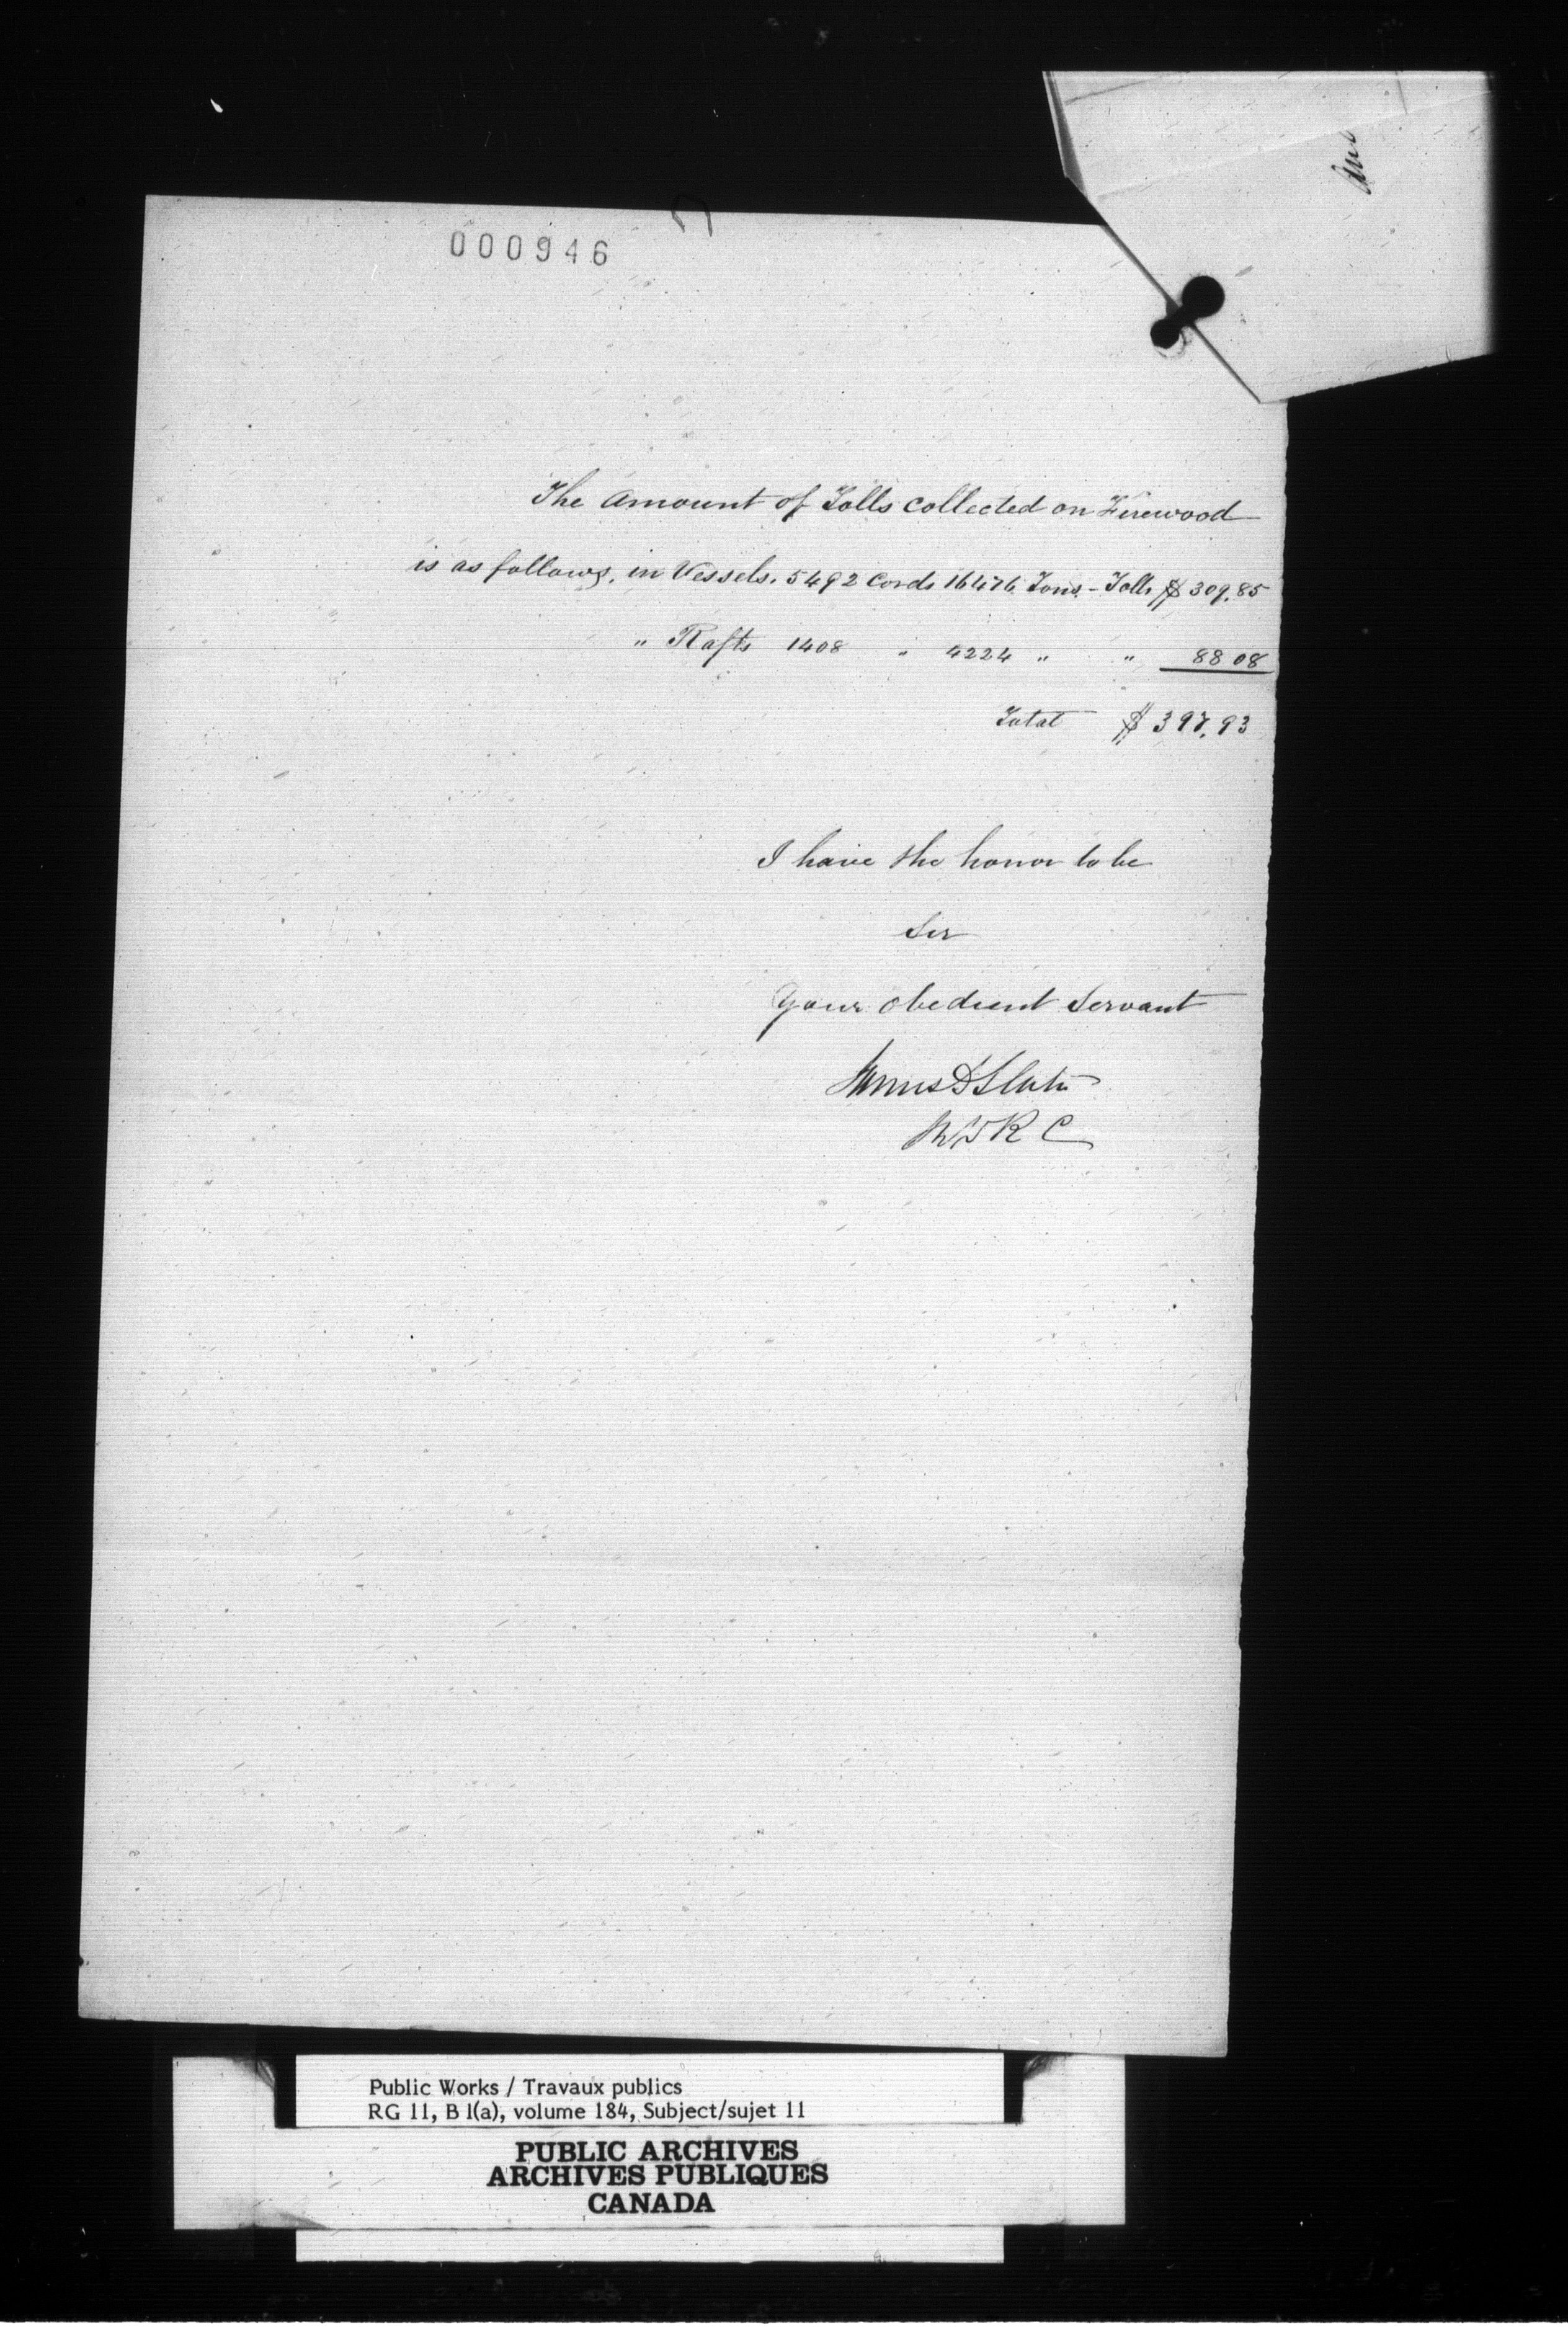 000946
The Amount of Tolls collected on Firewood
is as follows, in Vessels. 5492 Cords 16476 Tons - Tolls $309.85
" Rafts 1408 " 4224 " " 88 08
Total $397.93
I have the honor to be
Sir
Your obedient Servant
James D Slater
Public Works / Travaux publics
RG 11, B 1(a), volume 184, Subject/sujet 11
PUBLIC ARCHIVES
ARCHIVES PUBLIQUES
CANADA